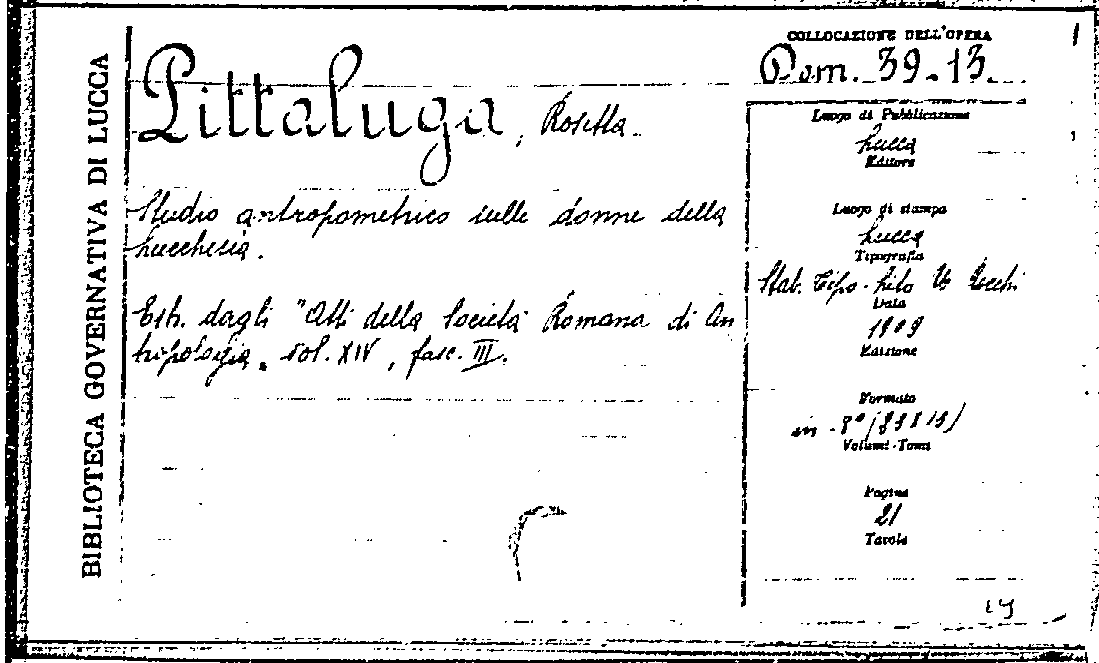 BIBLIOTECA GOVERNATIVA DI LUCCA
Pittaluga, Rosetta.
Studio antropometrico sulle donne della
Lucchesia.
Estr. dagli "Atti della Società Romana di An
tropologia, vol. XIV, fasc. III.
COLLOCAZIONE DELL'OPERA
Dom. 39.13.
Luogo di Pubblicazione
Lucca
Editore
Luogo di stampa
Lucca
Tipografia
Stab. Tipo-Lito
Data
1909
Edizione
Formato
in-8°
Volumi-Tomi
Pagine
21
Tavole